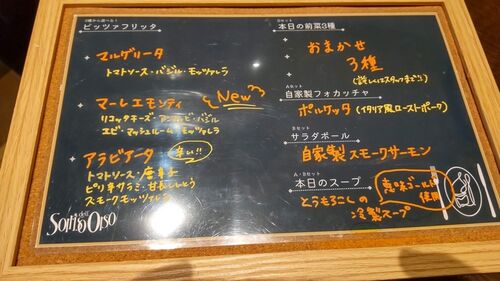 3種から選べる!
ピッツァフリッタ
マルゲリータ
トマトソース・バジル・モッツァレラ
マーレエモンティ
New
リコッタチーズ・アンチョビ・バジル
エビ・マッシュルーム・モッツァレラ
アラビアータ
辛い!!
トマトソース・唐辛子
ピリ辛サラミ・甘長しし唐
スモークモッツァレラ
Sorriso
Orso
Sセット
本日の前菜3種
おまかせ
3種
(詳しくはスタッフまで!)
Aセット
自家製フォカッチャ
ポルケッタ(イタリア風ローストポーク)
Sセット
サラダボール
自家製 スモークサーモン
A・Bセット
本日のスープ
とうもろこしの
冷製スープ
使用